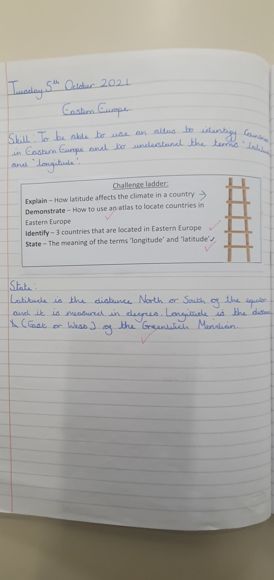 Tuesday 5th October 2021
Eastern Europe
Skill: To be able to use an atlas to identify Countries
in Eastern Europe and to understand the terms 'latitude'
and 'longitude'.
Challenge ladder:
Explain – How latitude affects the climate in a country
Demonstrate – How to use an atlas to locate countries in
Eastern Europe
Identify – 3 countries that are located in Eastern Europe
State – The meaning of the terms 'longitude' and 'latitude'
State:
Latitude is the distance North or South of the equator
and it is measured in degrees. Longitude is the distance
(East or West) of the Greenwich Meridian.